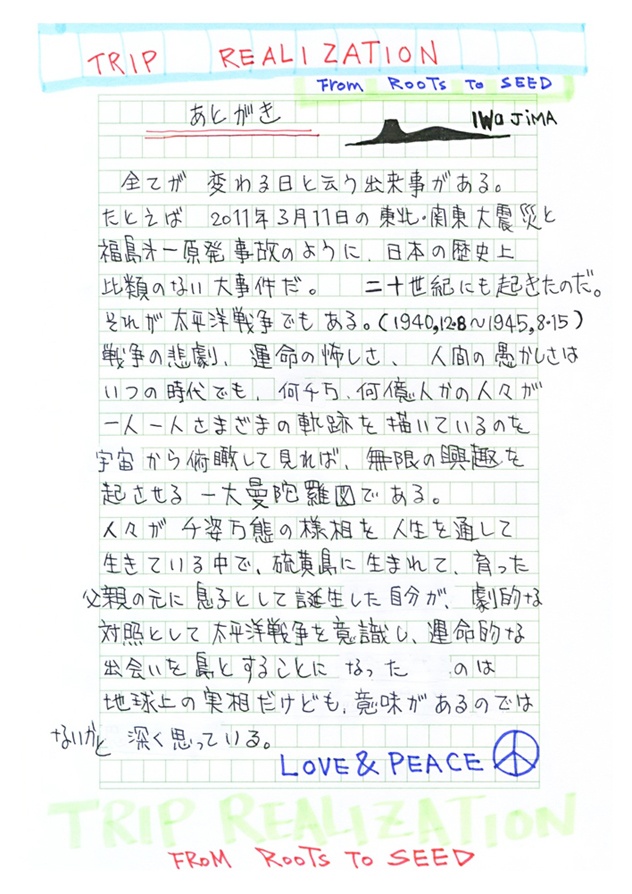 TRIP REALIZATION
From ROOTS TO SEED
あとがき
IWO JIMA
全てが 変わる日と云う出来事がある。
たとえば 2011年3月11日の東北・関東大震災と
福島才一原発事故のように、日本の歴史上
比類のない大事件だ。 二十世紀にも起きたのだ。
それが太平洋戦争でもある。(1940,12・8～1945,8・15)
戦争の悲劇、運命の怖しさ、人間の愚かしさは
いつの時代でも、何千万、何億人かの人々が
一人一人さまざまの軌跡を描いているのを
宇宙から俯瞰して見れば、無限の興趣を
起させる一大曼陀羅図である。
人々が千姿万態の様相を人生を通して
生きている中で、硫黄島に生まれて、育った
父親の元に息子として誕生した自分が、劇的な
対照として太平洋戦争を意識し、運命的な
出会いを島とすることになった のは
地球上の実相だけども、意味があるのでは
ないかと 深く思っている。
LOVE & PEACE
TRIP REALIZATION
FROM ROOTS TO SEED